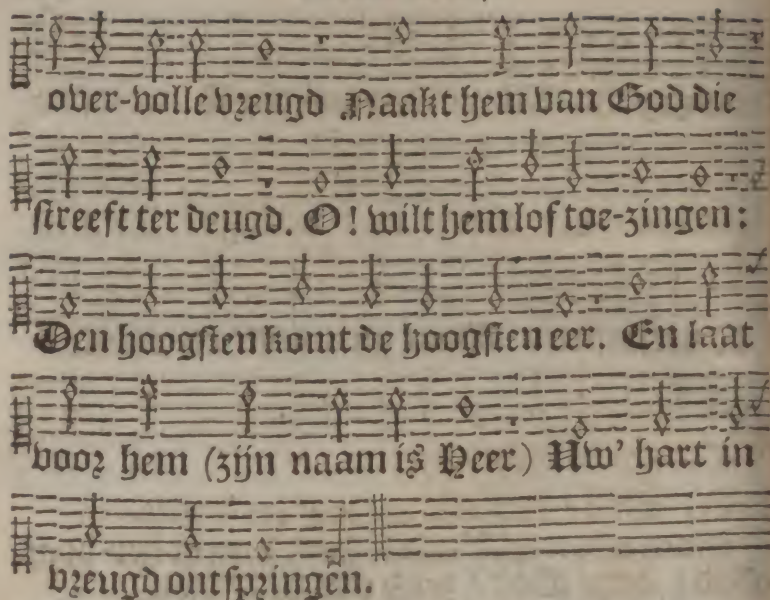 over-volle vreugd Naakt hem van God die
streeft ter deugd. O! wilt hem lof toe-zingen:
Den hoogsten komt de hoogsten eer. En laat
voor hem (zijn naam is Heer) Uw' hart in
vreugd ontspringen.